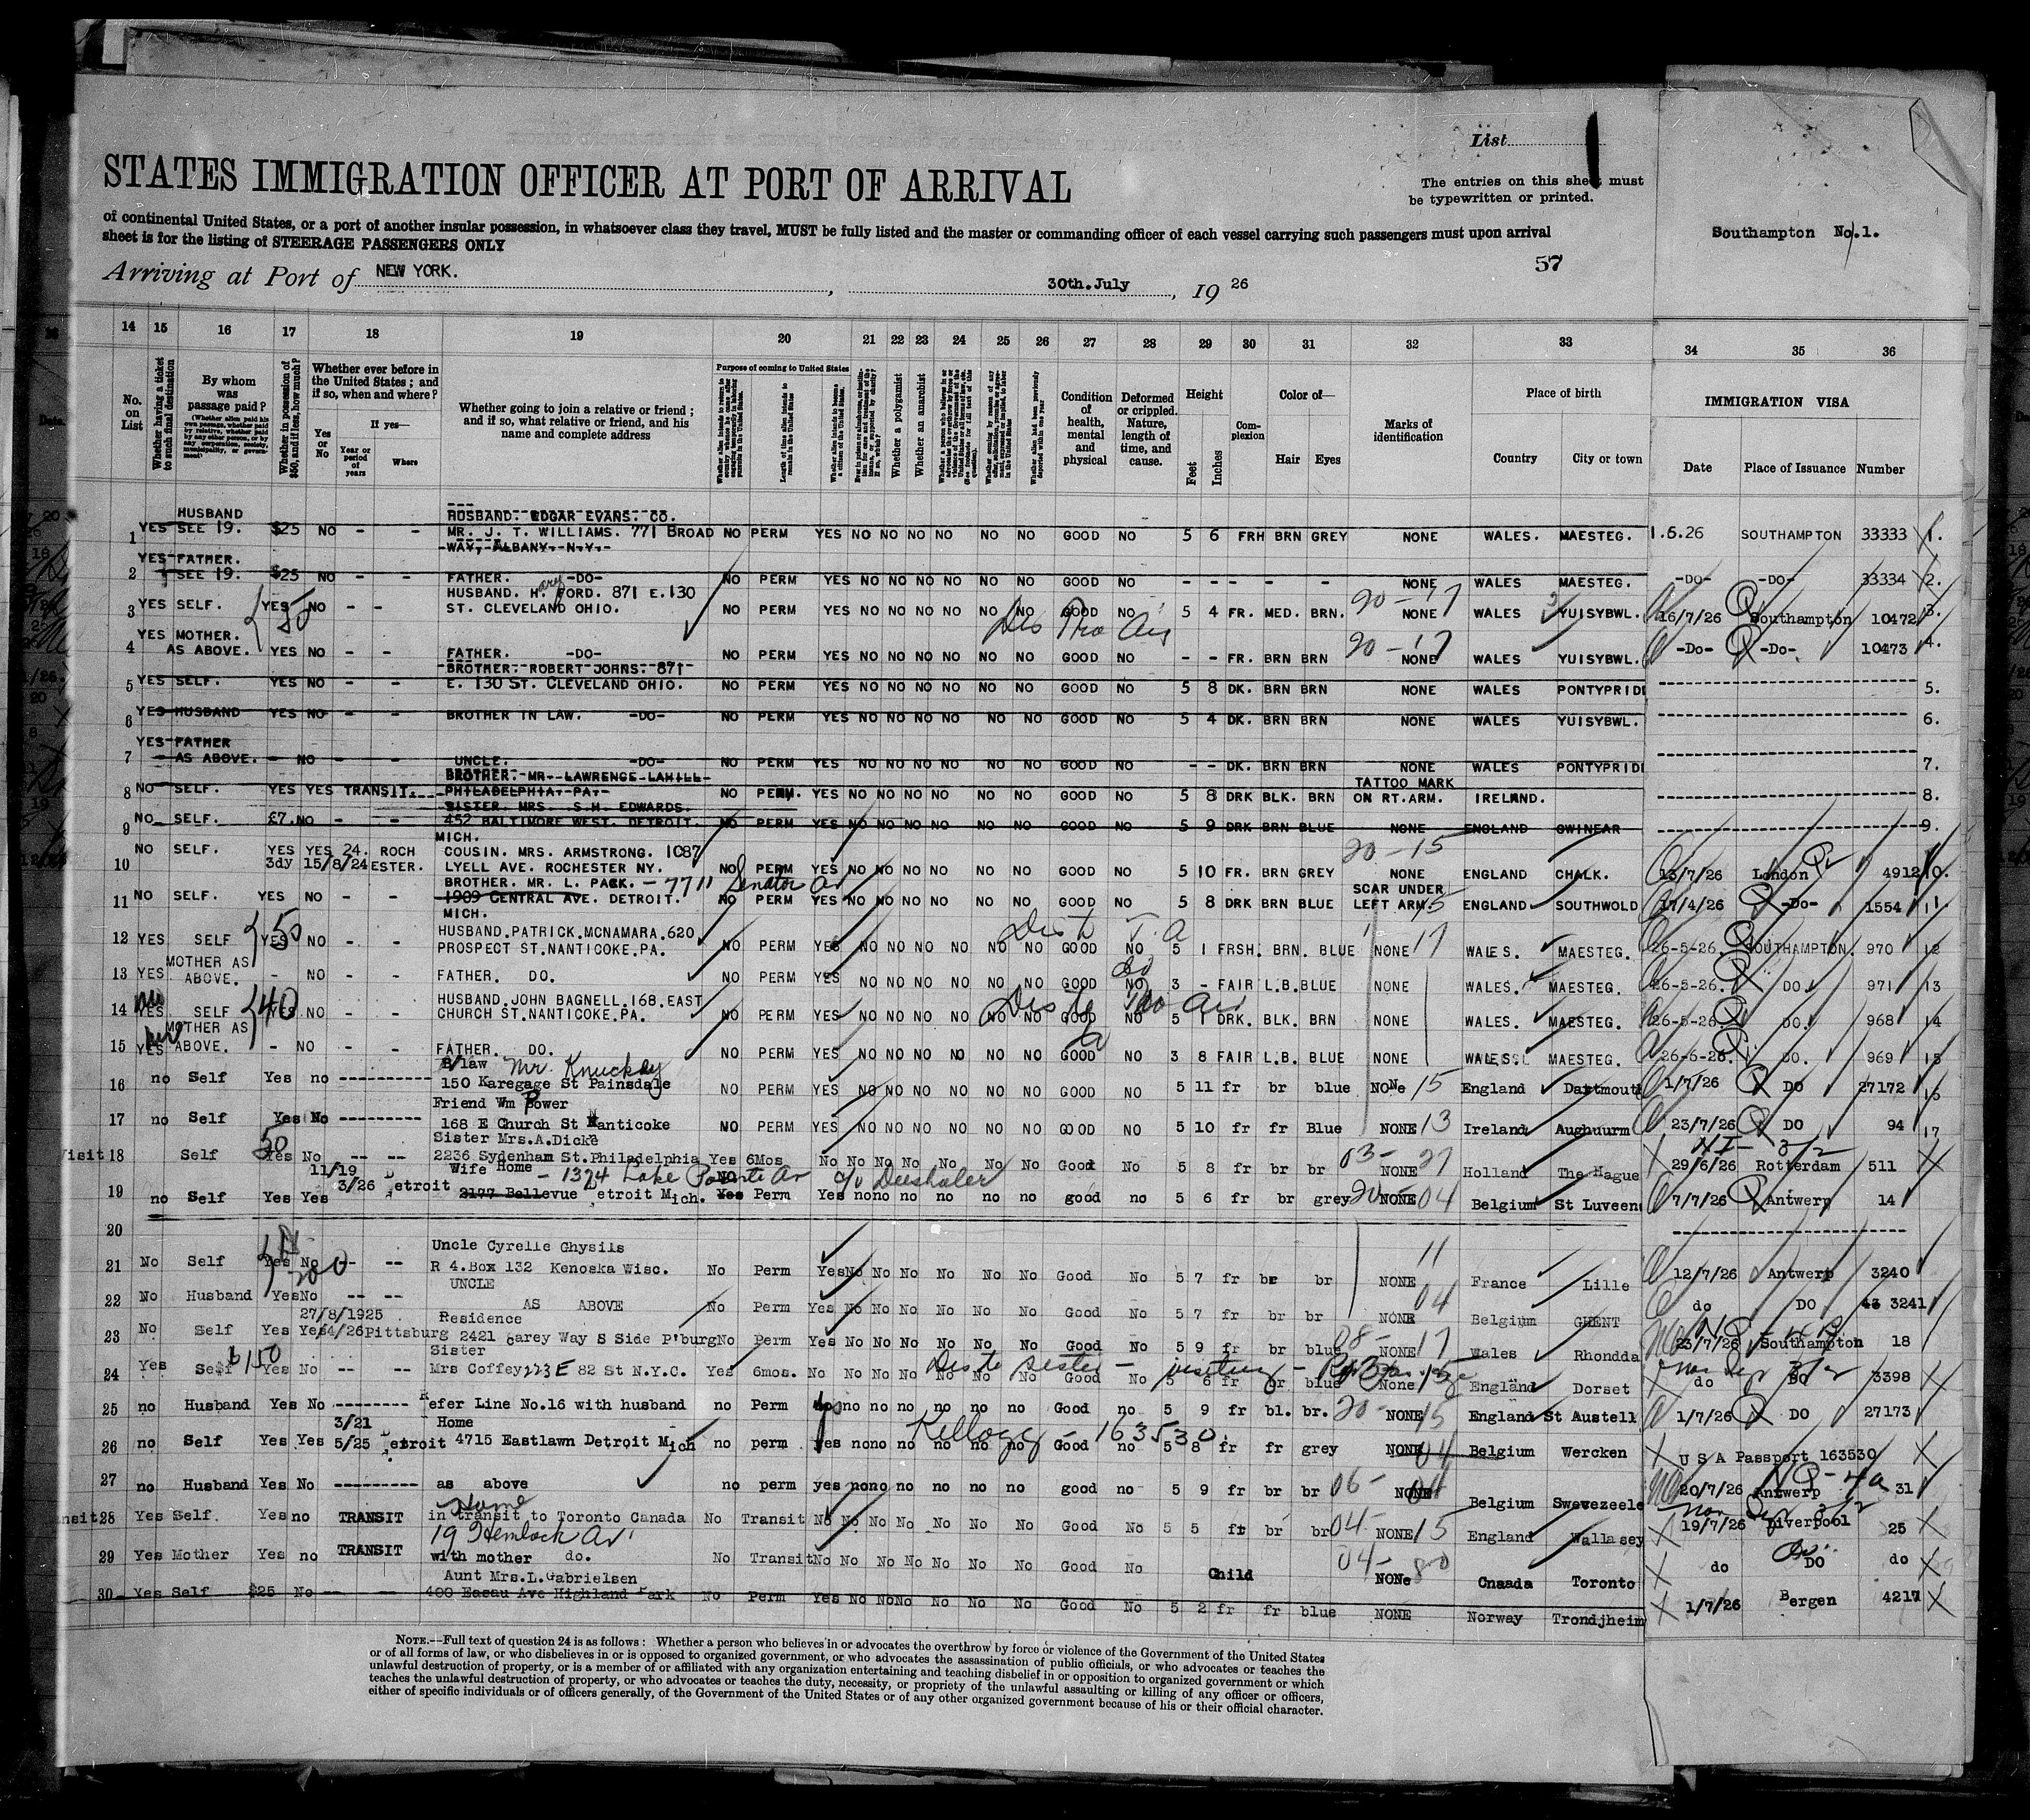 List
STATES IMMIGRATION OFFICER AT PORT OF ARRIVAL
The entries on this sheet must
be typewritten or printed.
of continental United States, or a port of another insular possession, in whatsoever class they travel, MUST be fully listed and the master or commanding officer of each vessel carrying such passengers must upon arrival
sheet is for the listing of STEERAGE PASSENGERS ONLY
Southampton No.1.
57
Arriving at Port of NEW YORK. , 30th.July , 19 26
14 15 16 17 18 19 20 21 22 23 24 25 26 27 28 29 30 31 32 33 34 35 36
No. on List
Whether having a ticket to such final destination
By whom was passage paid?
Whether in possession of $50, and if less, how much?
Whether ever before in the United States; and if so, when and where?
Yes or No
If yes—
Year or period of years
Where
Whether going to join a relative or friend; and if so, what relative or friend, and his name and complete address
Purpose of coming to United States
Whether a polygamist
Whether an anarchist
Condition of health, mental and physical
Deformed or crippled. Nature, length of time, and cause.
Height
Feet
Inches
Complexion
Color of—
Hair
Eyes
Marks of identification
Place of birth
Country
City or town
IMMIGRATION VISA
Date
Place of Issuance
Number
1 YES HUSBAND SEE 19. $25 NO - - HUSBAND. EDGAR EVANS. CO. MR. J. T. WILLIAMS. 771 BROAD WAY, ALBANY. N.Y. NO PERM YES NO NO NO NO NO NO GOOD NO 5 6 FRH BRN GREY NONE WALES. MAESTEG. 1.5.26 SOUTHAMPTON 33333 1.
2 YES FATHER. SEE 19. $25 NO - - FATHER. -DO- NO PERM YES NO NO NO NO NO NO GOOD NO - - - - - NONE WALES MAESTEG. -DO- -DO- 33334 2.
3 YES SELF. YES 50 NO - - HUSBAND. H. FORD. 871 E.130 ST. CLEVELAND OHIO. NO PERM YES NO NO NO NO NO NO GOOD NO 5 4 FR. MED. BRN. NONE WALES YUISYBWL. 16/7/26 Southampton 10472 3.
4 YES MOTHER. AS ABOVE. YES NO - - FATHER. -DO- NO PERM YES NO NO NO NO NO NO GOOD NO - - FR. BRN BRN 20-17 NONE WALES YUISYBWL. -Do- -Do- 10473 4.
5 YES SELF. YES NO - - BROTHER. ROBERT JOHNS. 871 E. 130 ST. CLEVELAND OHIO. NO PERM YES NO NO NO NO NO NO GOOD NO 5 8 DK. BRN BRN NONE WALES PONTYPRIDD 5.
6 YES HUSBAND YES NO - - BROTHER IN LAW. -DO- NO PERM YES NO NO NO NO NO NO GOOD NO 5 4 DK. BRN BRN NONE WALES YUISYBWL. 6.
7 YES FATHER AS ABOVE. - NO - - UNCLE. -DO- NO PERM YES NO NO NO NO NO NO GOOD NO - - DK. BRN BRN NONE WALES PONTYPRIDD 7.
8 NO SELF. YES YES TRANSIT. BROTHER. MR. LAWRENCE LAHILL PHILADELPHIA. PA. NO PERM. YES NO NO NO NO NO NO GOOD NO 5 8 DRK BLK. BRN TATTOO MARK ON RT.ARM. IRELAND. 8.
9 NO SELF. £7. NO - - SISTER. MRS. S.H. EDWARDS. 452 BALTIMORE WEST. DETROIT. MICH. NO PERM YES NO NO NO NO NO NO GOOD NO 5 9 DRK BRN BLUE NONE ENGLAND GWINEAR 9.
10 NO SELF. YES YES 24. ROCH 3dy 15/8/24 ESTER. COUSIN. MRS. ARMSTRONG. 1087 LYELL AVE. ROCHESTER NY. NO PERM YES NO NO NO NO NO NO GOOD NO 5 10 FR. BRN GREY 20-15 NONE ENGLAND CHALK. 13/7/26 London 4912 10.
11 NO SELF. YES NO - - BROTHER. MR. L. PACK. - 7711 Senator Av 1909 CENTRAL AVE. DETROIT. MICH. NO PERM YES NO NO NO NO NO NO GOOD NO 5 8 DRK BRN BLUE SCAR UNDER LEFT ARM. 15 ENGLAND SOUTHWOLD 17/4/26 -Do- 1554 11
12 YES SELF YES 50 NO - - HUSBAND.PATRICK.MCNAMARA.620. PROSPECT ST.NANTICOKE.PA. NO PERM YES NO NO NO NO NO NO GOOD NO 5 1 FRSH. BRN. BLUE NONE 17 WALES. MAESTEG. 26-5-26. SOUTHAMPTON. 970 12
13 YES MOTHER AS ABOVE. - NO - - FATHER. DO. NO PERM YES NO NO NO NO NO NO GOOD NO 3 - FAIR L.B. BLUE NONE WALES. MAESTEG. 26-5-26. DO. 971 13
14 YES SELF YES 40 NO - - HUSBAND.JOHN BAGNELL.168.EAST CHURCH ST.NANTICOKE.PA. NO PERM YES NO NO NO NO NO NO GOOD NO 5 1 DRK. BLK. BRN NONE WALES. MAESTEG. 26-5-26. DO. 968 14
15 YES MOTHER AS ABOVE. - NO - - FATHER. DO. NO PERM YES NO NO NO NO NO NO GOOD NO 3 8 FAIR L.B. BLUE NONE WALES MAESTEG. 26-6-26. DO. 969 15
16 no Self Yes no B/law Mr. Knuckey 150 Karegage St Painsdale NO PERM YES NO NO NO NO NO NO GOOD NO 5 11 fr br blue NONe 15 England Dartmouth 1/7/26 DO 27172 16
17 no Self Yes No Friend Wm Power 168 E Church St Nanticoke NO PERM YES NO NO NO NO NO NO GOOD NO 5 10 fr fr Blue NONE 13 Ireland Aughuurm 23/7/26 DO 94 17
Visit 18 Self 50 Yes No -- -- Sister Mrs.A.Dicke 2236 Sydenham St.Philadelphia Yes 6Mos No No No No No No No Good No 5 8 fr br br 03-27 NONE Holland The Hague 29/6/26 Rotterdam 511
19 no Self Yes Yes 11/19 3/26 Detroit Wife Home - 1324 Lake Pointe Av c/o Deeshaler 2177 Bellevue, Detroit Mich. Yes Perm Yes no no no no no no good no 5 6 fr br grey 20-04 NONE Belgium St Luveen 7/7/26 Antwerp 14
20
21 No Self Yes No -- -- Uncle Cyrelle Ghysils R 4.Box 132 Kenoska Wisc. No Perm Yes No No No No No No Good No 5 7 fr br br 11 NONE France Lille 12/7/26 Antwerp 3240
22 No Husband Yes No -- -- UNCLE AS ABOVE No Perm Yes No No No No No No Good No 5 7 fr br br 04 NONE Belgium GHENT do DO 3241
23 No Self Yes Yes 27/8/1925 /4/26 Pittsburg Residence 2421 Carey Way S Side P'burg No Perm Yes No No No No No No Good No 5 9 fr br blue 08-17 NONE Wales Rhondda 23/7/26 Southampton 18
24 Yes Self $150 Yes No -- -- Sister Mrs Coffey 223 E 82 St N.Y.C. Yes 6mos. No No No No No No No Good No 5 6 fr br blue None 15 England Dorset do DO 3398
25 no Husband Yes No Refer Line No.16 with husband no Perm no no no no no no Good no 5 9 fr bl. br. 20-15 NONE England St Austell 1/7/26 DO 27173
26 no Self Yes Yes 3/21 5/25 Detroit Home 4715 Eastlawn Detroit Mich no perm yes no no no no no no Kellogg - 163530 Good no 5 8 fr fr grey NONE 04 Belgium Wercken U S A Passport 163530
27 no Husband Yes No as above no perm yes no no no no no no good no 5 9 fr br br 06-04 NONE Belgium Swevezeele 20/7/26 Antwerp 31
Transit 28 Yes Self Yes no TRANSIT Home in transit to Toronto Canada 19 Hemlock Av No Transit No No No No No No No Good No 5 5 fr br br 04-15 NONE England Wallasey 19/7/26 Liverpool 25
29 Yes Mother Yes no TRANSIT with mother do. No Transit No No No No No No No Good No Child 04- NONe Cnaada Toronto do DO do
30 Yes Self $25 No -- -- Aunt Mrs.L.Gabrielsen 400 Easau Ave Highland Park No Perm Yes No No No No No No Good No 5 2 fr fr blue NONE Norway Trondjheim 1/7/26 Bergen 4217
NOTE.—Full text of question 24 is as follows: Whether a person who believes in or advocates the overthrow by force or violence of the Government of the United States
or of all forms of law, or who disbelieves in or is opposed to organized government, or who advocates the assassination of public officials, or who advocates or teaches the
unlawful destruction of property, or is a member of or affiliated with any organization entertaining and teaching disbelief in or opposition to organized government or which
teaches the unlawful destruction of property, or who advocates or teaches the duty, necessity, or propriety of the unlawful assaulting or killing of any officer or officers,
either of specific individuals or of officers generally, of the Government of the United States or of any other organized government because of his or their official character.